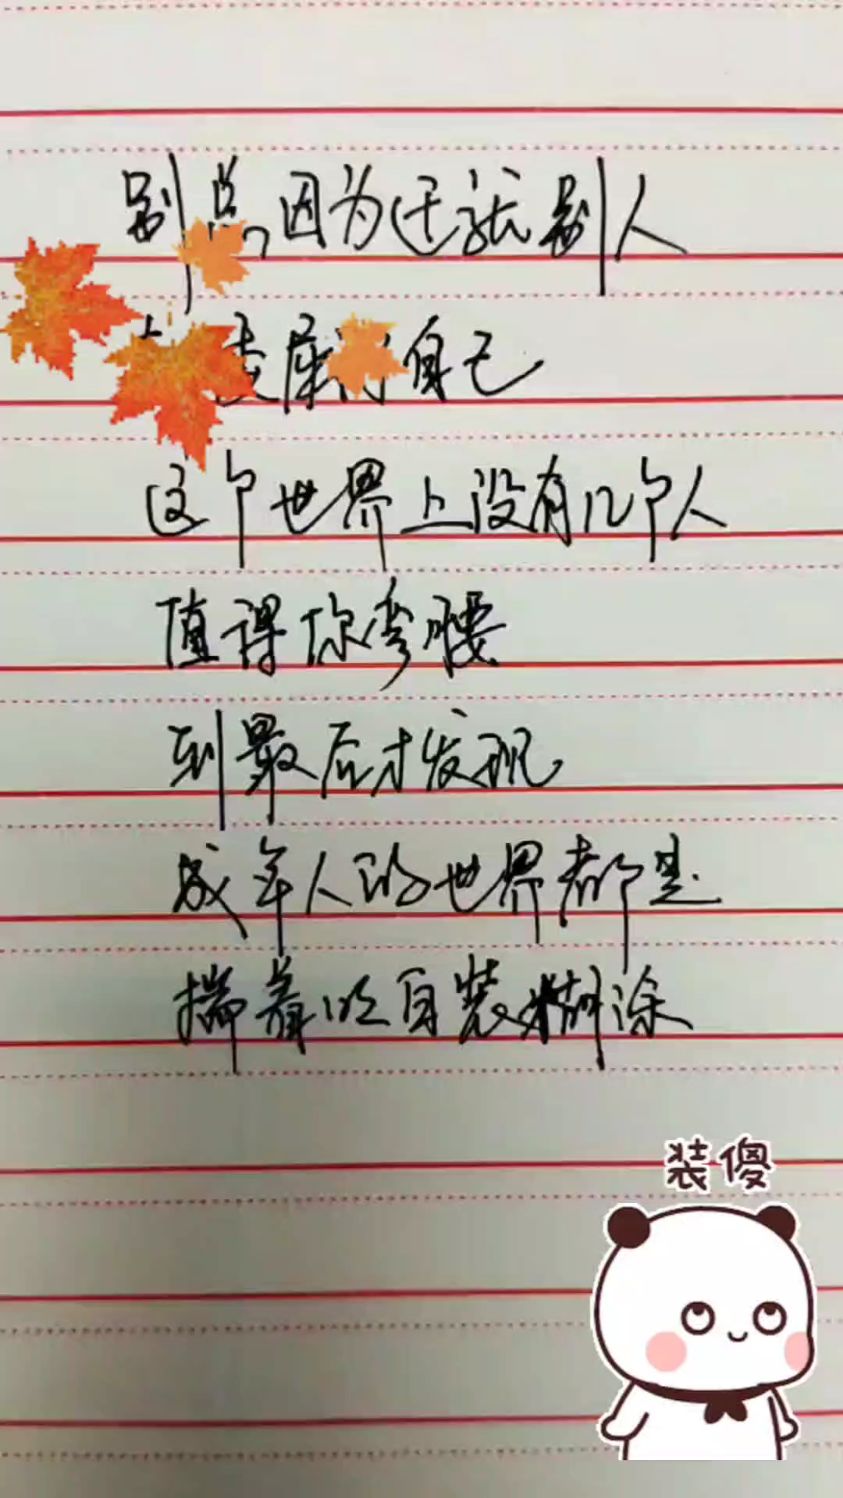 别总因为迁就别人
委屈了自己
这个世界上没有几个人
值得你弯腰
到最后才发现
成年人的世界都是
揣着明白装糊涂
装傻